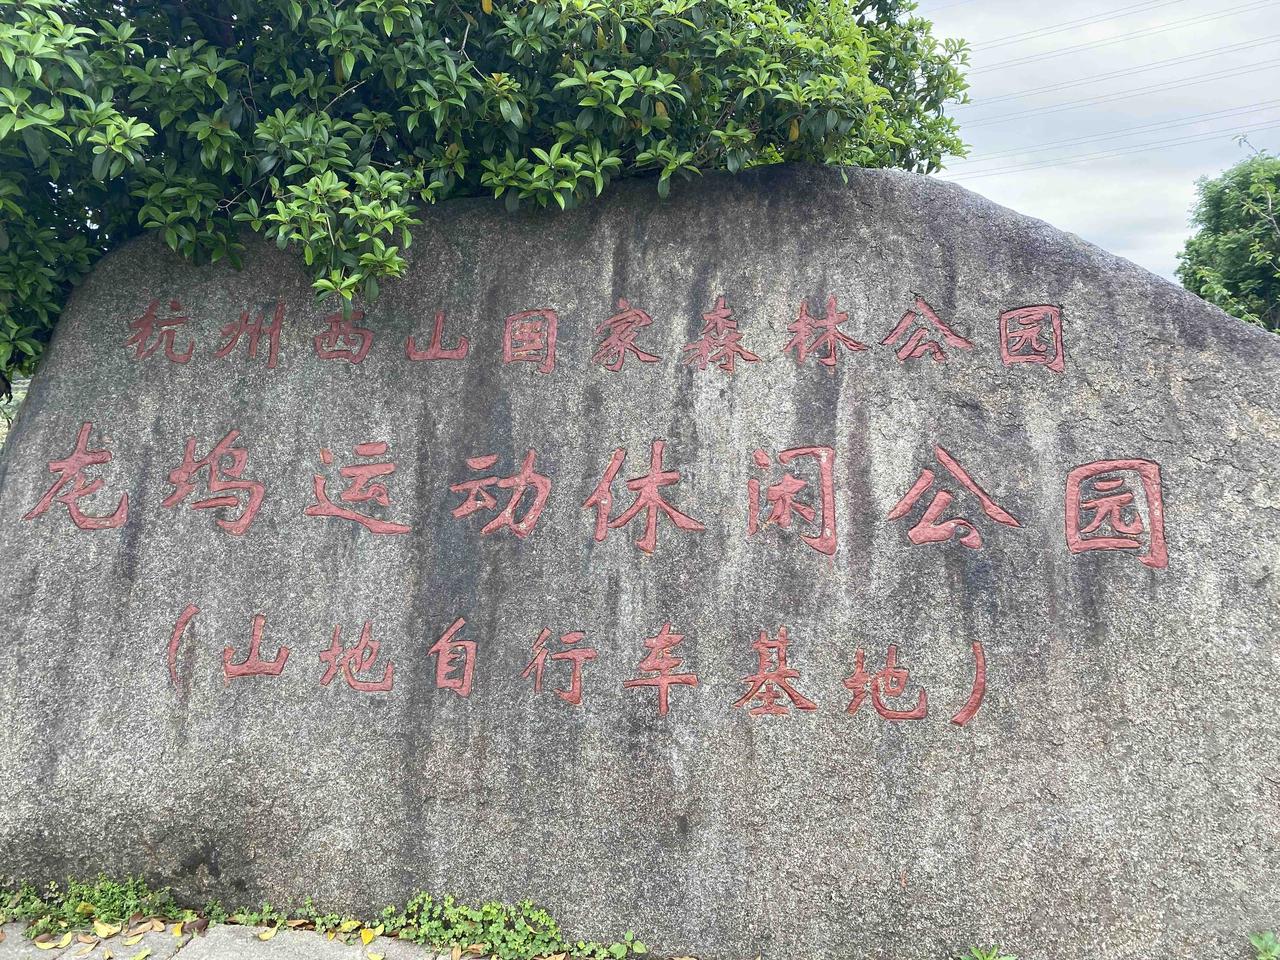 杭州西山国家森林公园
龙坞运动休闲公园
(山地自行车基地)